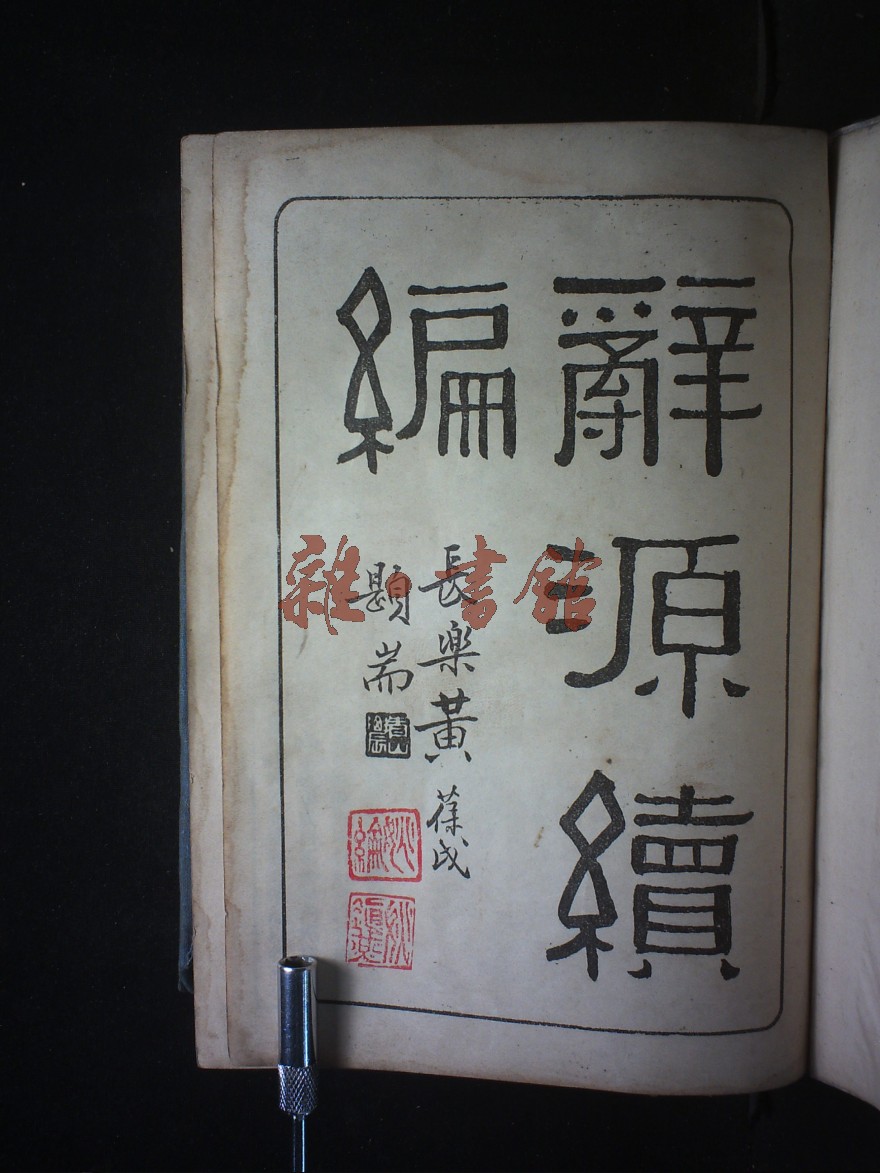 辭源續
編
長樂黃葆戉
題耑
雜書館